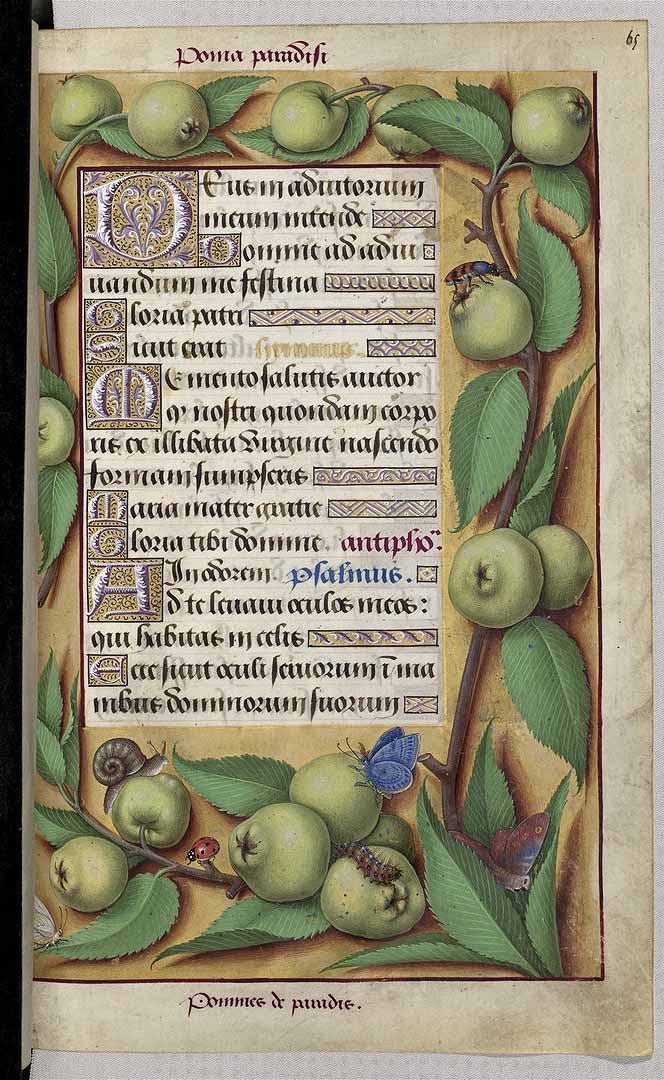 65
Poma paradisi
Deus in adiutorium
meum intende
Domine ad adiu
uandum me festina
Gloria patri
Sicut erat hymnus.
Memento salutis auctor
q nostri quondam corpo
ris ex illibata Virgine nascendo
formam sumpseris
Maria mater gratie
Gloria tibi domine. antipho.
In odorem psalmus.
Ad te leuaui oculos meos:
qui habitas in celis
Ecce sicut oculi seruorum ī ma
nibus dominorum suorum
Pommes de paradis.